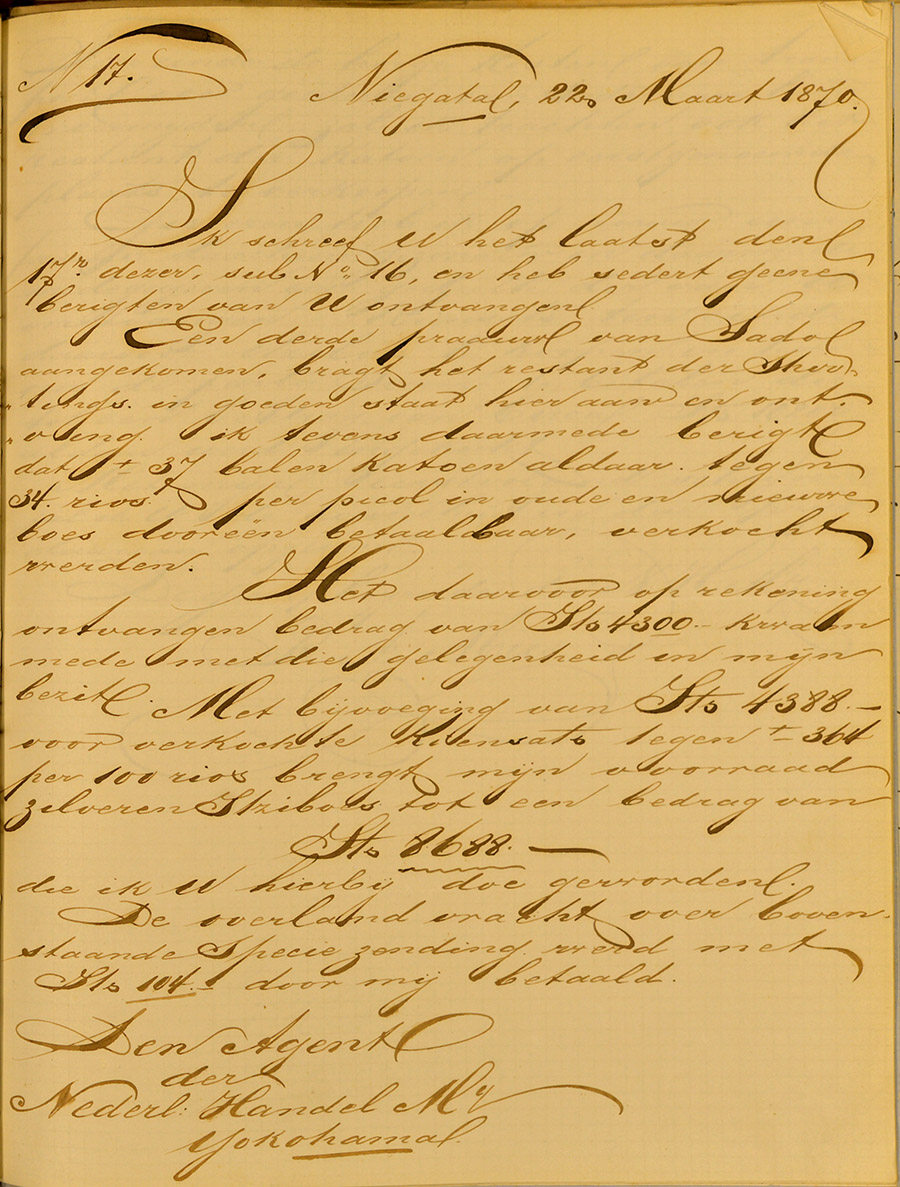 N 17.
Niegata, 22 Maart 1870.
Ik schreef U het laatst den
17n dezer, sub No 16, en heb sedert geene
berigten van U ontvangen.
Een derde praauw van Sado
aangekomen, bragt het restant der Shir-
„tings. in goeden staat hier aan en ont-
„ving ik tevens daarmede berigt
dat ± 37 balen Katoen aldaar tegen
34. rios. per picol in oude en nieuwe
boes dooréén betaalbaar, verkocht
werden.
Het daarvoor op rekening
ontvangen bedrag van Sts 4300.- kwam
mede met die gelegenheid in mijn
bezit. Met bijvoeging van Sts 4388.-
voor verkochte Kiensats tegen ± 364
per 100 rios brengt mijn voorraad
zilveren Itziboes tot een bedrag van
Sts 8688.-
die ik U hierbij doe geworden.
De overland vracht over boven-
staande Specie zending werd met
Sts 104.- door mij betaald.
Den Agent
der
Nederl: Handel My
Yokohama.